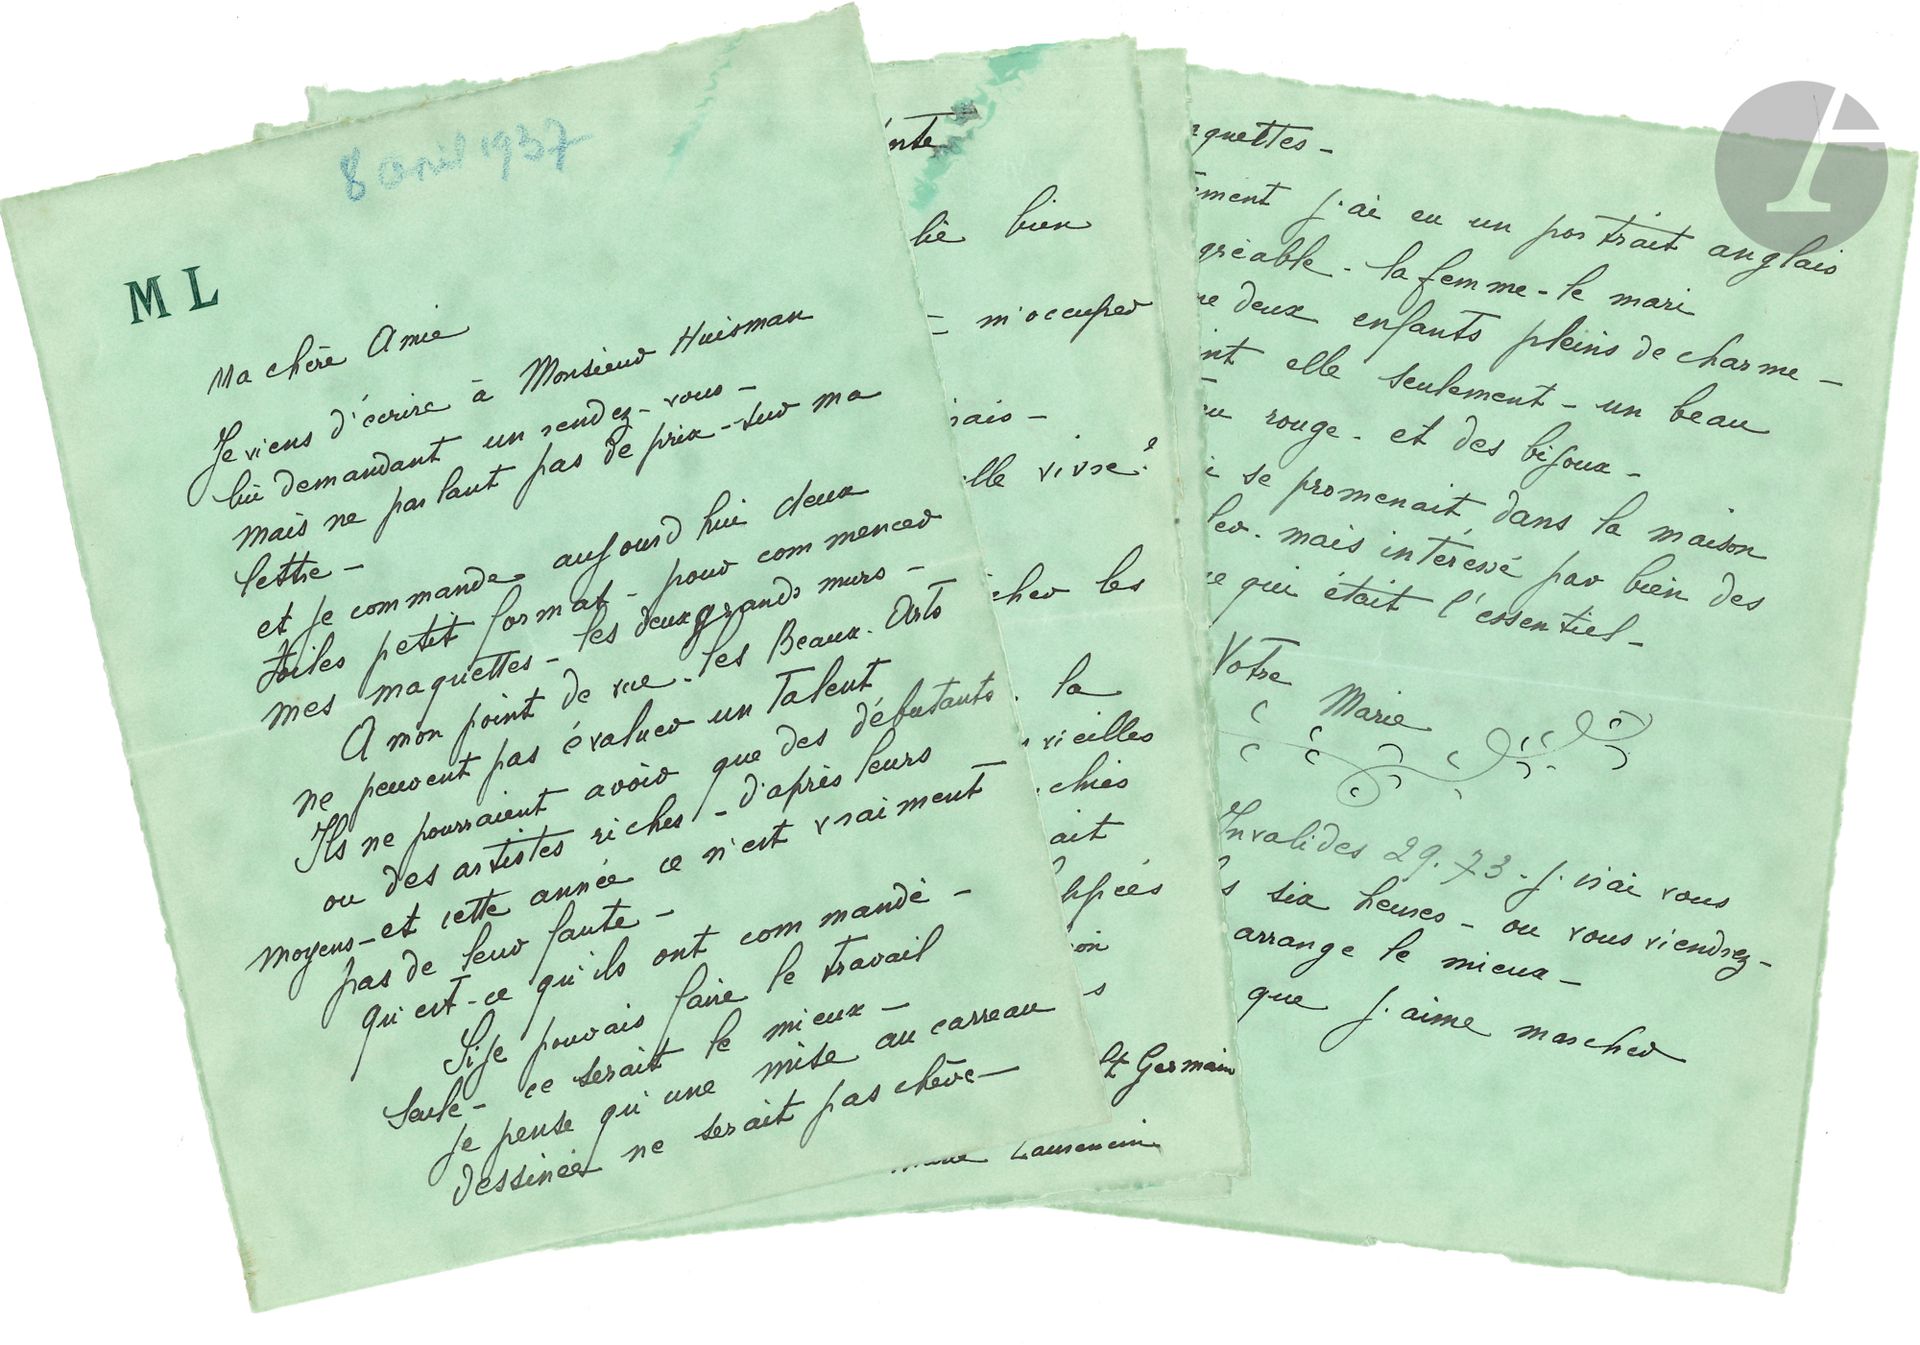 8 avril 1937
ML
Ma chère Amie
Je viens d'écrire à Monsieur Huisman
lui demandant un rendez-vous-
mais ne parlant pas de prix - sur ma
lettre -
et je commande aujourd hui deux
toiles petit format - pour commencer
mes maquettes - les deux grands murs -
A mon point de vue - les Beaux. Arts
ne peuvent pas évaluer un talent
Ils ne pourraient avoir que des débutants
ou des artistes riches - d'après leurs
moyens - et cette année ce n'est vraiment
pas de leur faute -
qu'est-ce qu'ils ont commandé -
Si je pouvais faire le travail
seule - ce serait le mieux -
je pense qu'une mise au carreau
dessinée ne serait pas chère -
nte
lié bien
- m'occuper
nais -
elle vivre?
cher les
. la
vieilles
chies
ait
s
St Germain
Marie Laurencin
quettes -
ement j'ai eu un portrait anglais
gréable - la femme - le mari
ne deux enfants pleins de charme -
int elle seulement - un beau
eu rouge - et des bijoux -
i se promenait dans la maison
ler - mais intéressé par bien des
ne qui était l'essentiel -
Votre
Marie
Invalides 29.73 - j'irai vous
s six heures - ou vous viendrez -
arrange le mieux -
que j'aime marcher